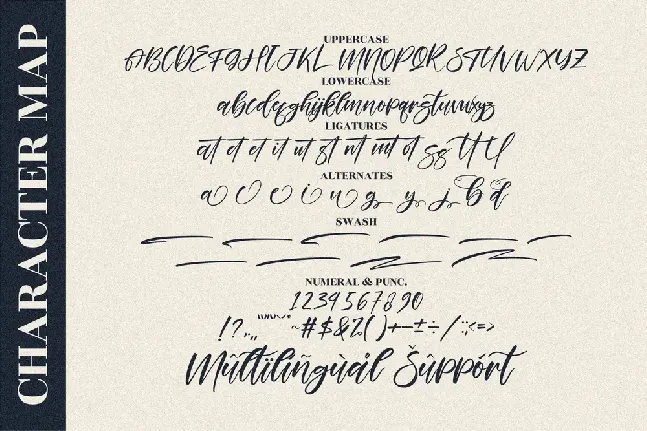 CHARACTER MAP
UPPERCASE
ABCDEFGHIJKL MNOPQRSTUVWXYZ
LOWERCASE
abcdefghijklmnopqrstuvwxyz
LIGATURES
at et it ut st nt mt ot ss tt ll
ALTERNATES
a g y j b d
SWASH
NUMERAL & PUNC.
1234567890
!?.,, ~#$&%()+-±÷/:;<=>
Mûltïlingùål Šûppórt